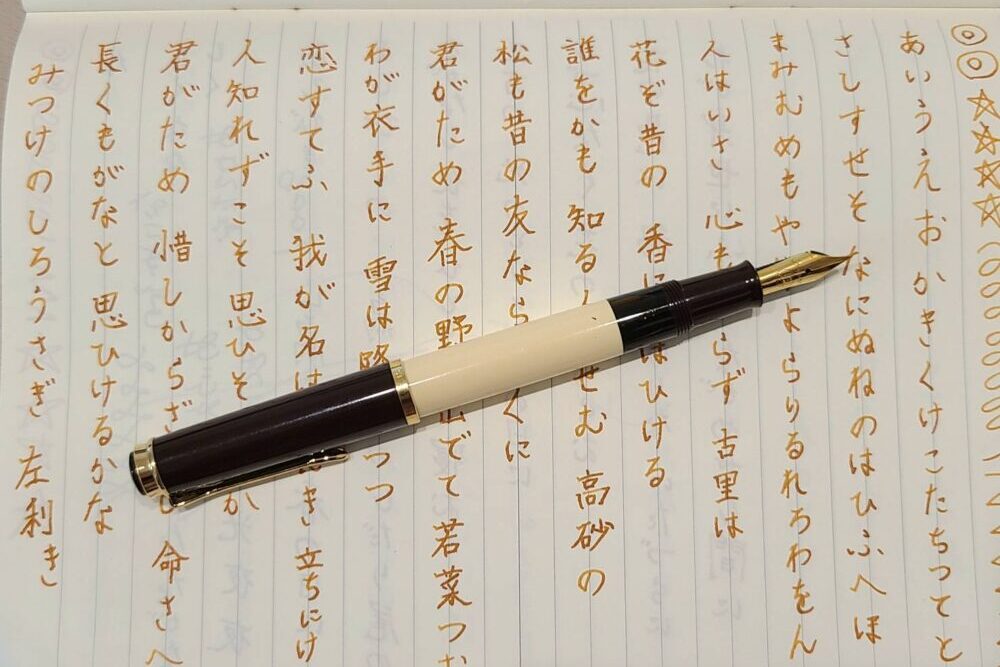 あいうえお かきくけこ たちつてと
さしすせそ なにぬねの はひふへほ
まみむめも や よ らりるれろ わをん
人はいさ 心も らず 古里は
花ぞ昔の 香に ひける
誰をかも 知る せむ 高砂の
松も昔の友なら くに
君がため 春の野 でて 若菜つ
わが衣手に 雪は つつ
恋すてふ 我が名は き 立ちにけ
人知れずこそ 思ひそ か
君がため 惜しからざ 命さへ
長くもがなと 思ひけるかな
みつけのしろうさぎ 左利き